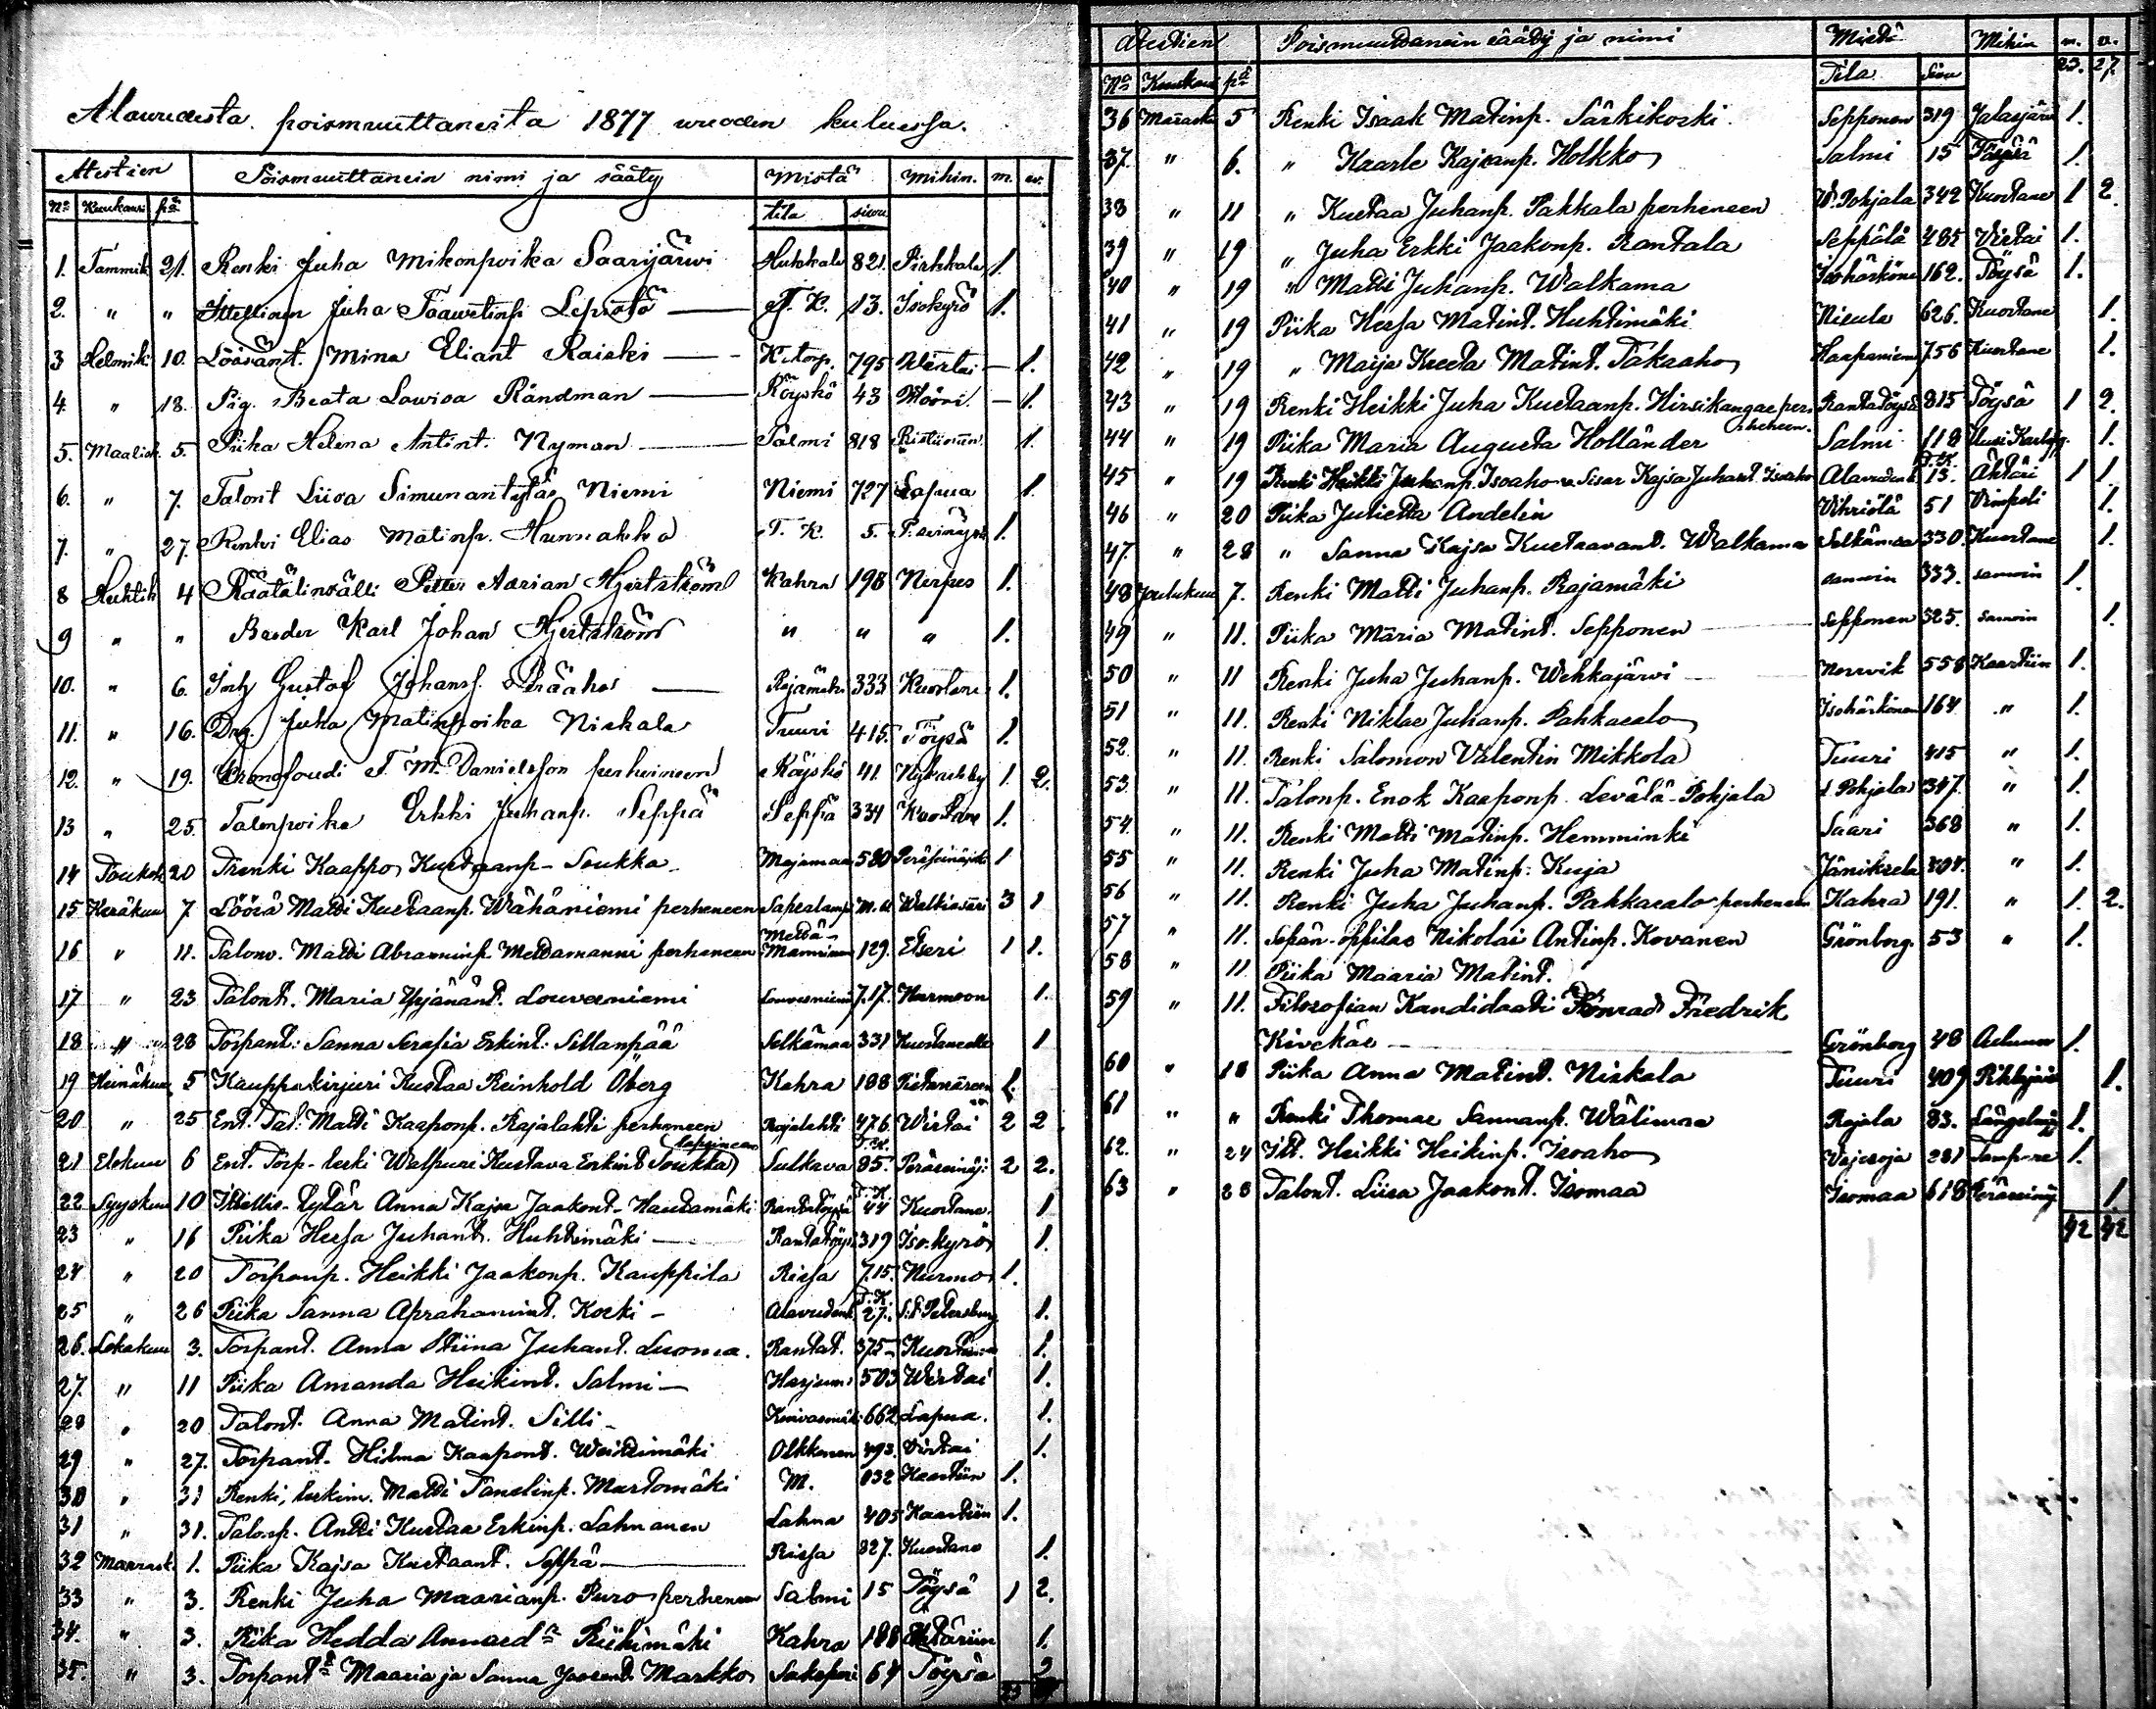 Alavudesta poismuuttaneita 1877 vuoden kuluessa.
Atestien Poismuuttanein nimi ja sääty Mistä Mihin. m. v.
No Kuukausi pä tila sivu
1. Tammik. 21. Renki Juha Mikonpoika Saarijärwi Huhkala 821. Pirkkala 1.
2. " " Juha Taawetinp. T. K. 13. Isokyrö 1.
3 Helmik. 10. Mina Eliant Raiski 795 1.
4. " 18. Pig. Beata Lowisa Rändman Röyskö 43 Wööri 1.
5. Maalisk. 5. Piika Helena Antint. Nyman Salmi 818 1.
6. " 7. Talont Liisa Simunantytär Niemi Niemi 727 Lapua 1.
7. " 27. Renki Elias Matinp. Hunnakko T. K. 5. 1.
8 Huhtik 4 Räätälinsälli Petter Adrian Hjertström Kahra 198 Nerpes 1.
9 " " Karl Johan Hjertström " " " 1.
10. " 6. Gustaf Johanss. Rajamäki 333 Kuortane 1.
11. " 16. Drg. Juha Matinpoika Niskala Tuuri 415. Töysä 1.
12. " 19. Kronofoudi F. M. Danielsson perheineen Röyskö 41. Nykarleby 1 2.
13 " 25. Talonpoika Erkki Juhanp. Seppä Seppä 334 Kuortane 1.
14 Toukok 20 Renki Kaappo Kustaanp. Soukka Majamaa 580 Peräseinäjoki 1
15 Kesäkuu 7. Löösä Matti Kustaanp. Wähäniemi perheneen 3 1
16 " 11. Talonp. Matti Abraminp. Metsämanni perheneen Metsä- 129. Etseri 1 1.
17 " 23 Talont. Maria Yrjänänt. Louvesniemi Louvesniemi 717. 1.
18 " 28 Torpant. Sanna Serafia Erkint. Sillanpää Selkämaa 331 Kuortaneelle 1
19 Heinäkuu 5 Kauppakirjuri Kustaa Reinhold Öberg Kahra 188 Pietarsaareen 1.
20 " 25 Ent. Tal. Matti Kaaponp. Rajalahti perheneen Rajalahti 476 Wirtai 2 2
21 Elokuu 6 Ent. Torp. leski Walpuri Kustava Erkint Soukka lapsineen Sulkava 85. Peräseinäj: 2 2.
22 Syyskuu 10 Itsellis-tytär Anna Kajsa Jaakont. Hautamäki Rantatöysä T. K. 44 Kuortane. 1
23 " 16 Piika Hessa Juhant. Huhtimäki Rantatöysä 319 Iso-kyrö 1.
24 " 20 Torpanp. Heikki Jaakonp. Kauppila Rissa 715. Nurmo 1.
25 " 26 Piika Sanna Aprahamint. Koski Alavudenk. T. K. 27. S:t Petersburg 1.
26. Lokakuu 3. Torpant. Anna Stiina Juhant. Luoma. Rantat. 375 Kuortane 1.
27. " 11 Piika Amanda Heikint. Salmi 503 Wirtai 1.
28 " 20 Talont. Anna Matint. Silli 662 Lapua. 1.
29 " 27. Torpant. Hilma Kaapont. Olkkonen 493. Virtai 1.
30 " 31 Renki, leskim. Matti Tanelinp. Martomäki M. 832 Kaartiin 1.
31 " 31. Talonp. Antti Kustaa Erkinp. Lahnanen Lahna 405 Kaartiin 1.
32 Marrask. 1. Piika Kajsa Kustaant. Seppä Rissa 327. Kuortane 1.
33 " 3. Renki Juha Maarianp. Puro perheneen Salmi 15 Töysä 1 2.
34. " 3. Piika Hedda Riihimäki Kahra 188 Ähtäriin 1.
35. " 3. Torpant. Maaria ja Sanna Markko 64 Töysä 2
23
Atestien Poismuuttanein sääty ja nimi Mistä Mihin m. v.
No Kuukausi pä Tila Sivu 23. 27.
36 Marrask 5 Renki Isaak Matinp. Särkikoski Sepponen 319 Jalasjärvi 1.
37. " 6. " Kaarle Kajsanp. Holkko Salmi 15 Töysä 1.
38 " 11 " Kustaa Juhanp. Pakkala perheneen Pohjala 342 Kuortane 1 2.
39 " 19 " Juha Erkki Jaakonp. Rantala Seppälä 485 Virtai 1.
40 " 19 " Matti Juhanp. Walkama Isohärkönen 162. Töysä 1.
41 " 19 Piika Hessa Matint. Huhtimäki 626. Kuortane 1.
42 " 19 " Maija Kreeta Matint. Takaaho Haapaniemi 756 Kuortane 1.
43 " 19 Renki Heikki Juha Kustaanp. Hirsikangas perheheen. Rantatöysä 815 Töysä 1 2.
44 " 19 Piika Maria Augusta Holländer Salmi 118 1.
45 " 19 Renki Heikki Juhanp. Isoaho sisar Kajsa Juhant. Isoaho Alavudenk T. K. 13. Ähtäri 1 1.
46 " 20 Piika Julietta Andelin Vihriälä 51 Vimpeli 1.
47. " 28 " Sanna Kajsa Kustaavant. Walkama Selkämaa 330. Kuortane 1.
48 Joulukuu 7. Renki Matti Juhanp. Rajamäki samoin 333. samoin 1.
49 " 11. Piika Maria Matint. Sepponen Sepponen 525. samoin 1.
50 " 11 Renki Juha Juhanp. Wehkajärwi Norrvik 558 Kaartiin 1.
51 " 11. Renki Niklas Juhanp. Pahkasalo Isohärkönen 164 " 1.
52. " 11. Renki Salomon Valentin Mikkola Tuuri 415 " 1.
53. " 11. Talonp. Enok Kaaponp. Levälä-Pohjala Pohjala 347. " 1.
54. " 11. Renki Matti Matinp. Hemminki Saari 368 " 1.
55 " 11. Renki Juha Matinp. Kuja Jäniksela 304. " 1.
56 " 11. Renki Juha Juhanp. Pahkasalo perheneen Kahra 191. " 1. 2.
57 " 11. Sepän-oppilas Nikolai Antinp. Kovanen Grönborg. 53 " 1.
58 " 11 Piika Maaria Matint.
59 " 11. Filosofian Kandidaati Konrad Fredrik
Kivekäs Grönborg 48 1.
60 " 18 Piika Anna Matint. Niskala Tuuri 409 1.
61 " " Renki Thomas Sannanp. Wälimaa Rajala 83. Längelmäki 1.
62. " 24 Itl. Heikki Heikinp. Isoaho 281 Tampere 1.
63 " 28 Talont. Liisa Jaakont. Isomaa Isomaa 618 Peräseinäj. 1.
42 42